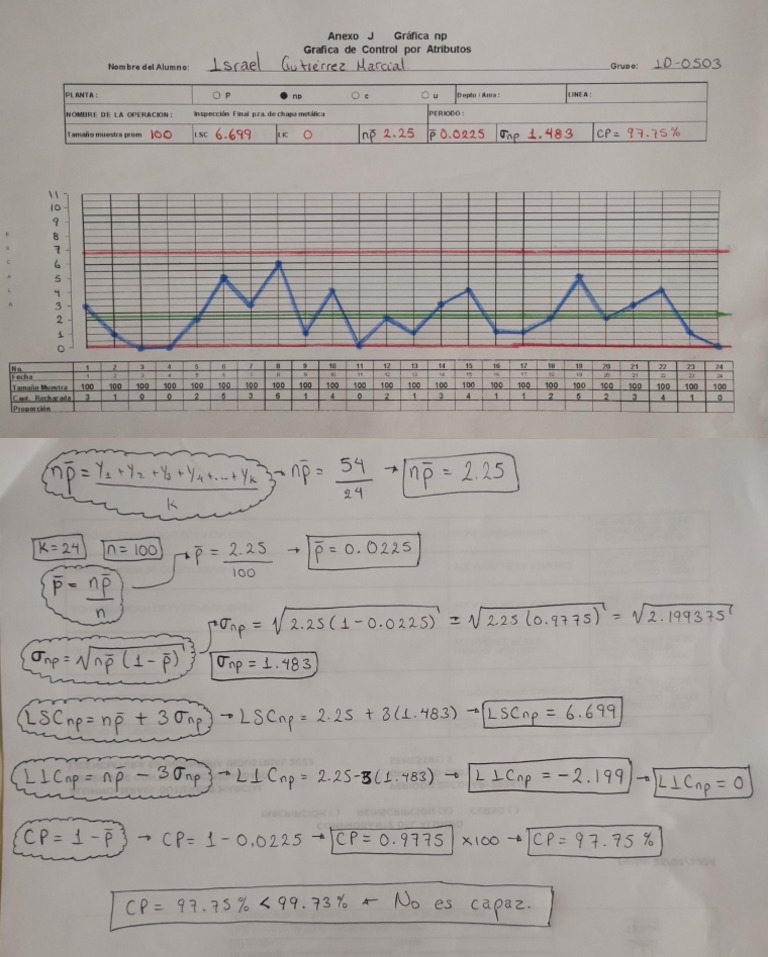 Anexo J Gráfica np
Grafica de Control por Atributos
Nombre del Alumno: Israel Gutiérrez Marcial Grupo: ID-0503
PLANTA: P np c u Depto / Area: LINEA:
NOMBRE DE LA OPERACION: Inspección Final pza. de chapa metálica PERIODO:
Tamaño muestra prom 100 LSC 6.699 LIC 0 np̄ 2.25 p̄ 0.0225 σnp 1.483 CP= 97.75%
11
10
9
8
7
6
5
4
3
2
1
0
E
S
C
A
L
A
No. 1 2 3 4 5 6 7 8 9 10 11 12 13 14 15 16 17 18 19 20 21 22 23 24
Fecha 1 2 3 4 5 6 7 8 9 10 11 12 13 14 15 16 17 18 19 20 21 22 23 24
Tamaño Muestra 100 100 100 100 100 100 100 100 100 100 100 100 100 100 100 100 100 100 100 100 100 100 100 100
Cant. Rechazada 3 1 0 0 2 5 3 6 1 4 0 2 1 3 4 1 1 2 5 2 3 4 1 0
Proporción
np̄ = Y1 + Y2 + Y3 + Y4 + ... + Yk / k → np̄ = 54 / 24 → np̄ = 2.25
k = 24 n = 100
p̄ = np̄ / n → p̄ = 2.25 / 100 → p̄ = 0.0225
σnp = √np̄ (1 - p̄) → σnp = √2.25 (1 - 0.0225) = √2.25 (0.9775) = √2.199375
σnp = 1.483
LSCnp = np̄ + 3σnp → LSCnp = 2.25 + 3(1.483) → LSCnp = 6.699
LICnp = np̄ - 3σnp → LICnp = 2.25 - 3(1.483) → LICnp = -2.199 → LICnp = 0
CP = 1 - p̄ → CP = 1 - 0.0225 → CP = 0.9775 x100 → CP = 97.75 %
CP = 97.75 % < 99.73% ← No es capaz.